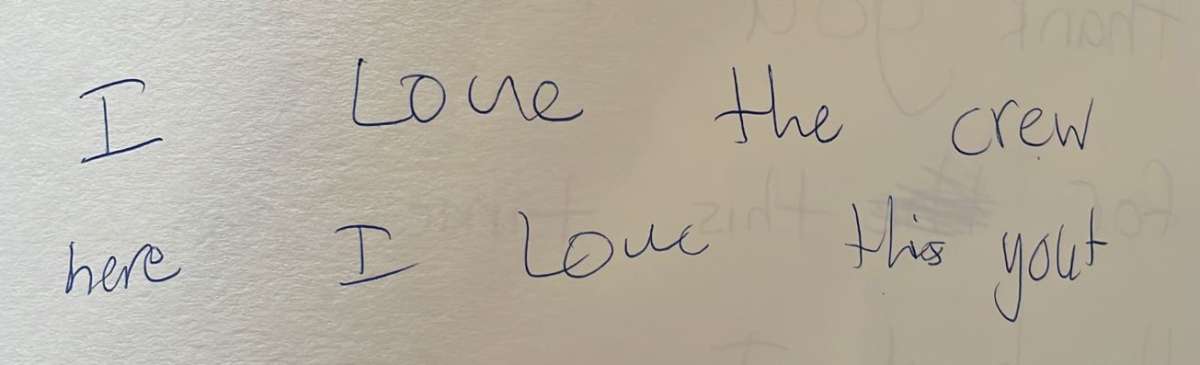 I Love the crew
here I Love this yout